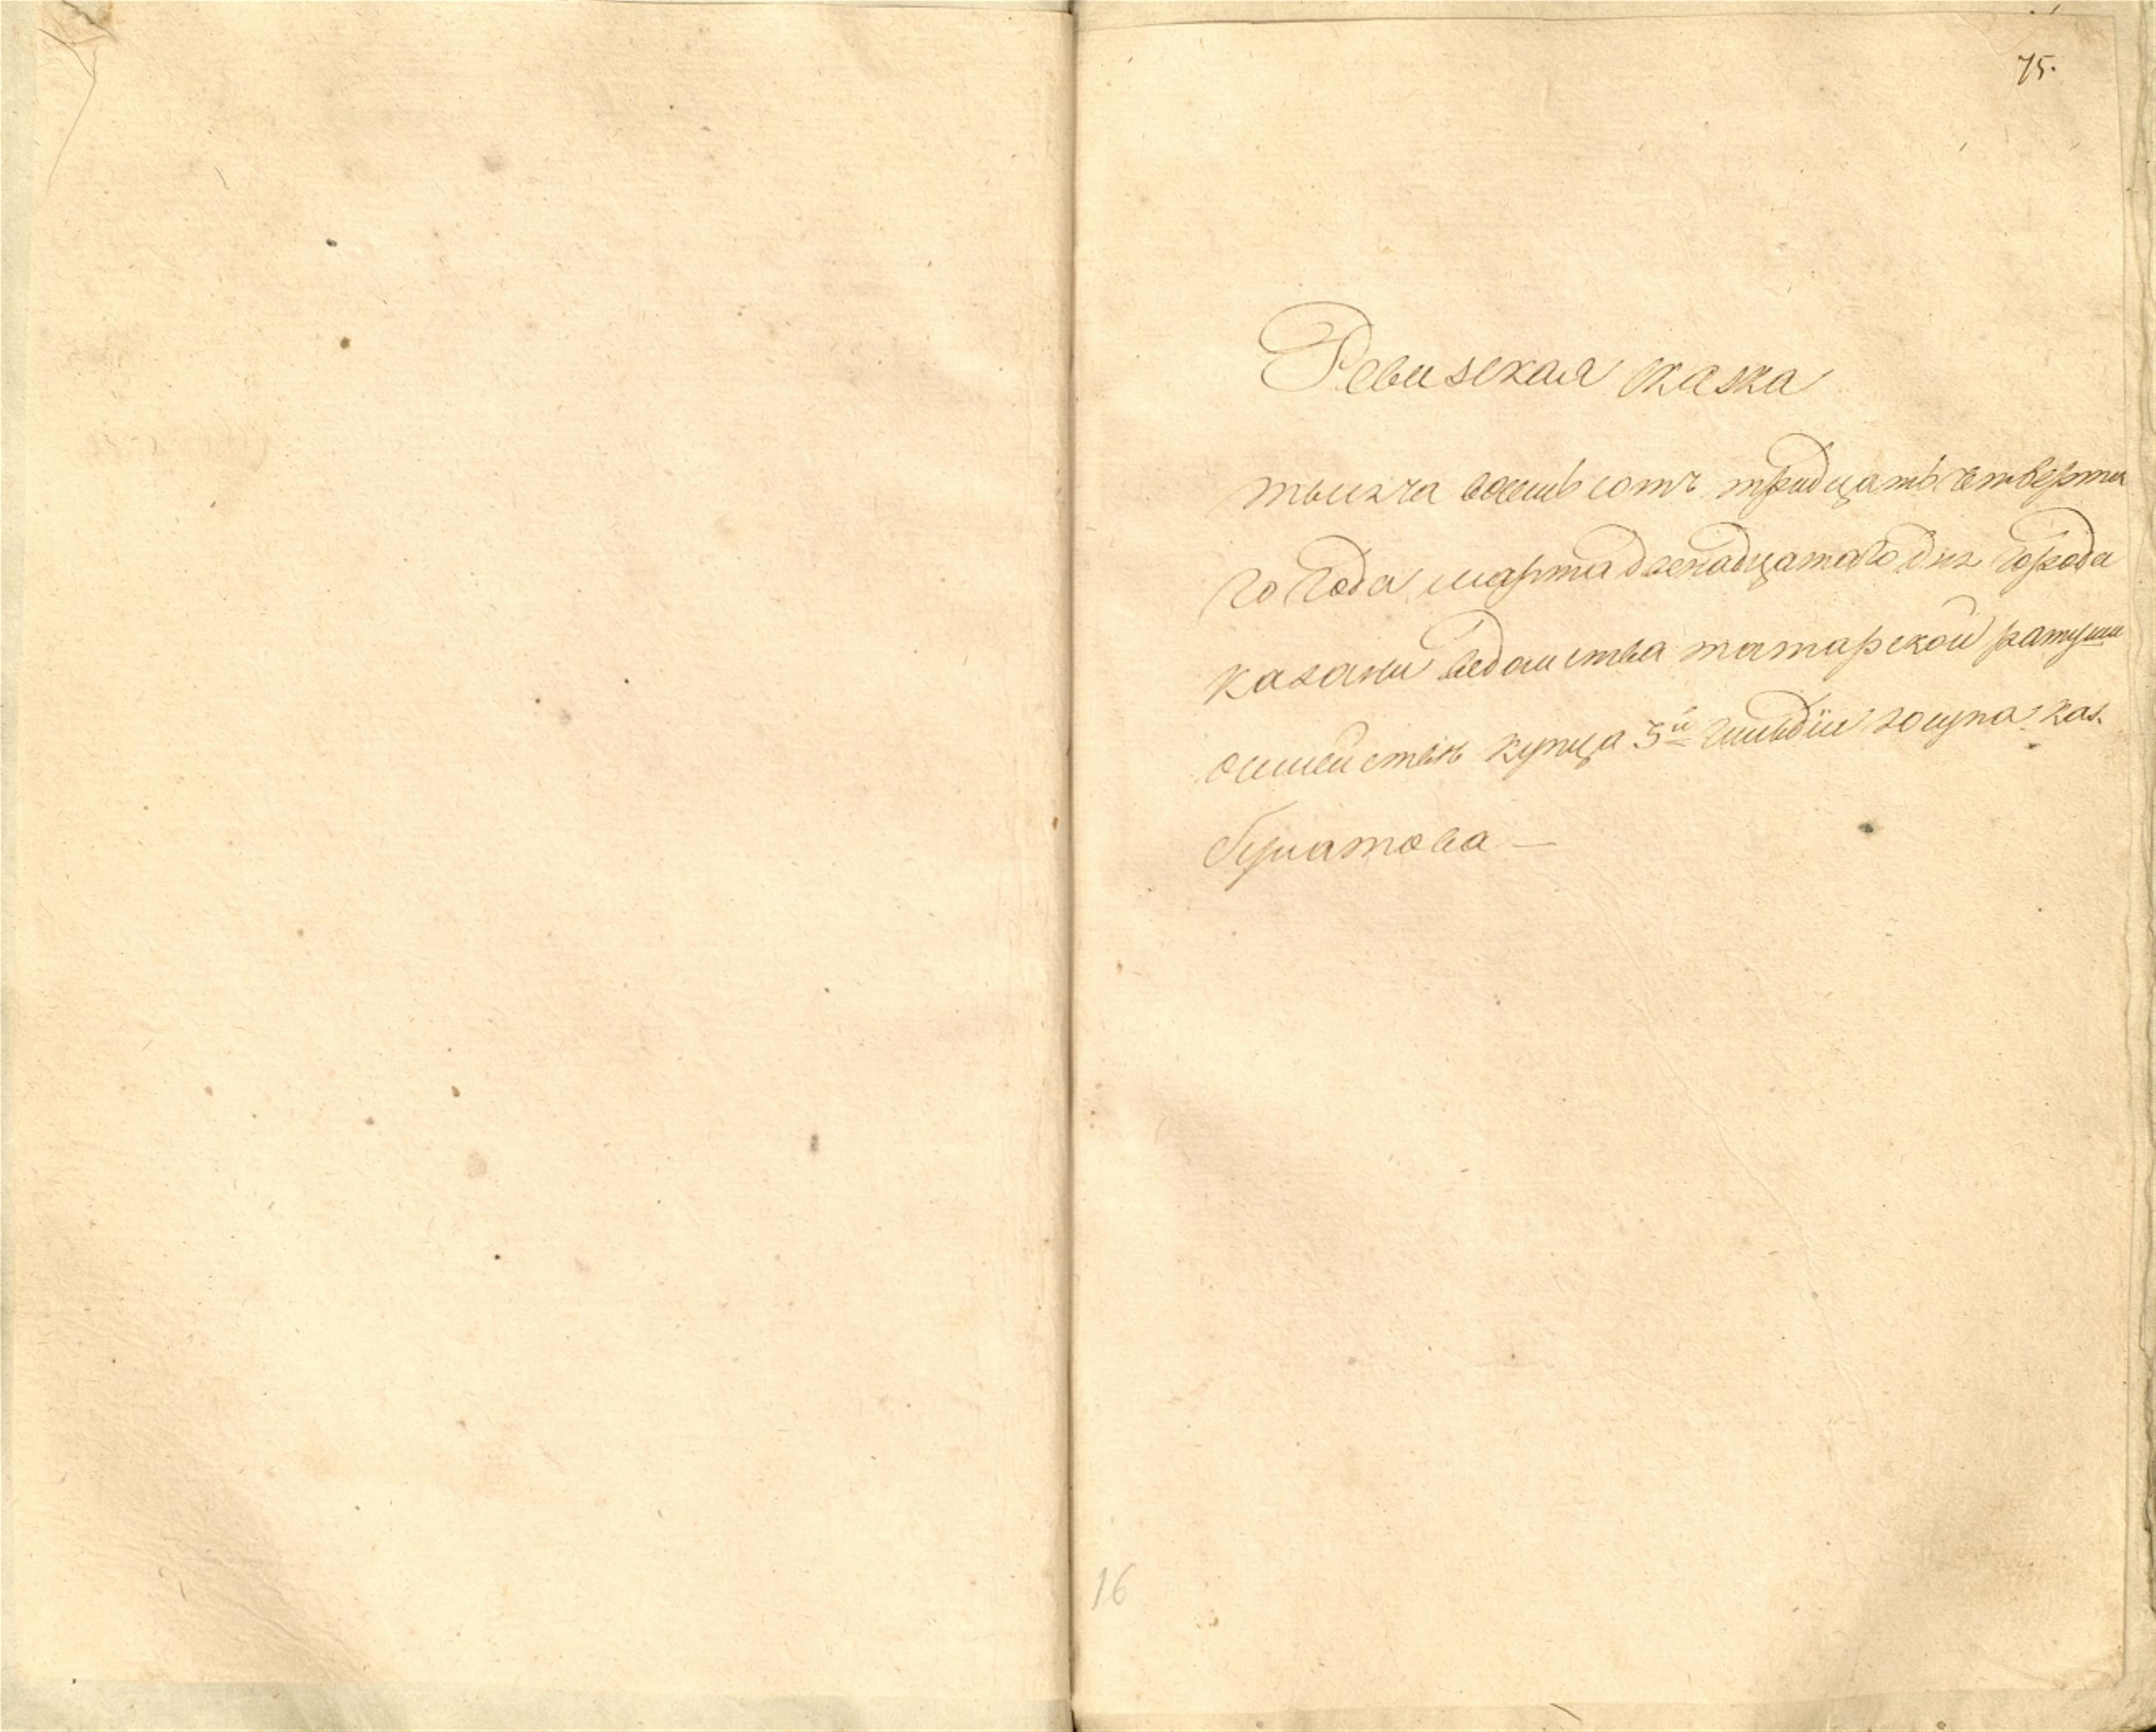 75.
Ревизская сказка
тысяча восемь сотъ тридцать четверта
го года марта двенадцатого дня города
казани ведомства татарской ратуши
осемействе купца 3й гильдїи юсупа
бурнатова —
16